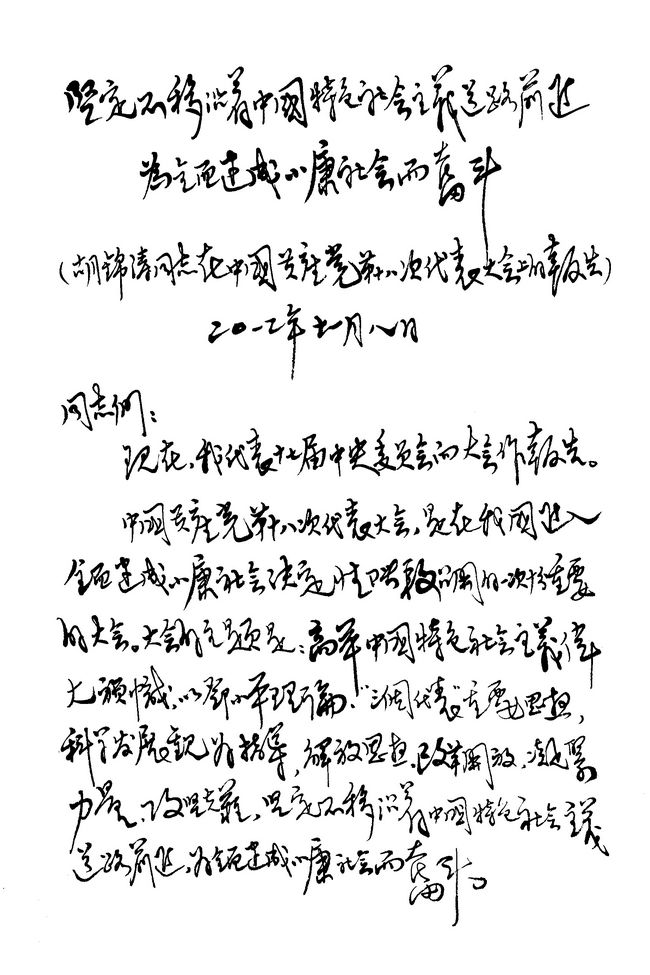 坚定不移沿着中國特色社会主義道路前进
为全面建成小康社会而奮斗
(胡锦涛同志在中國共産党第十八次代表大会上的報告)
二〇一二年十一月八日
同志们：
现在，我代表十七届中央委员会向大会作報告。
中國共産党第十八次代表大会，是在我國进入
全面建成小康社会决定性階段召開的一次十分重要
的大会。大会的主题是：高举中國特色社会主義偉
大旗幟，以鄧小平理論、“三個代表”重要思想、
科学发展觀为指導，解放思想，改革開放，凝聚
力量，攻坚克難，坚定不移沿着中國特色社会主義
道路前进，为全面建成小康社会而奮斗。